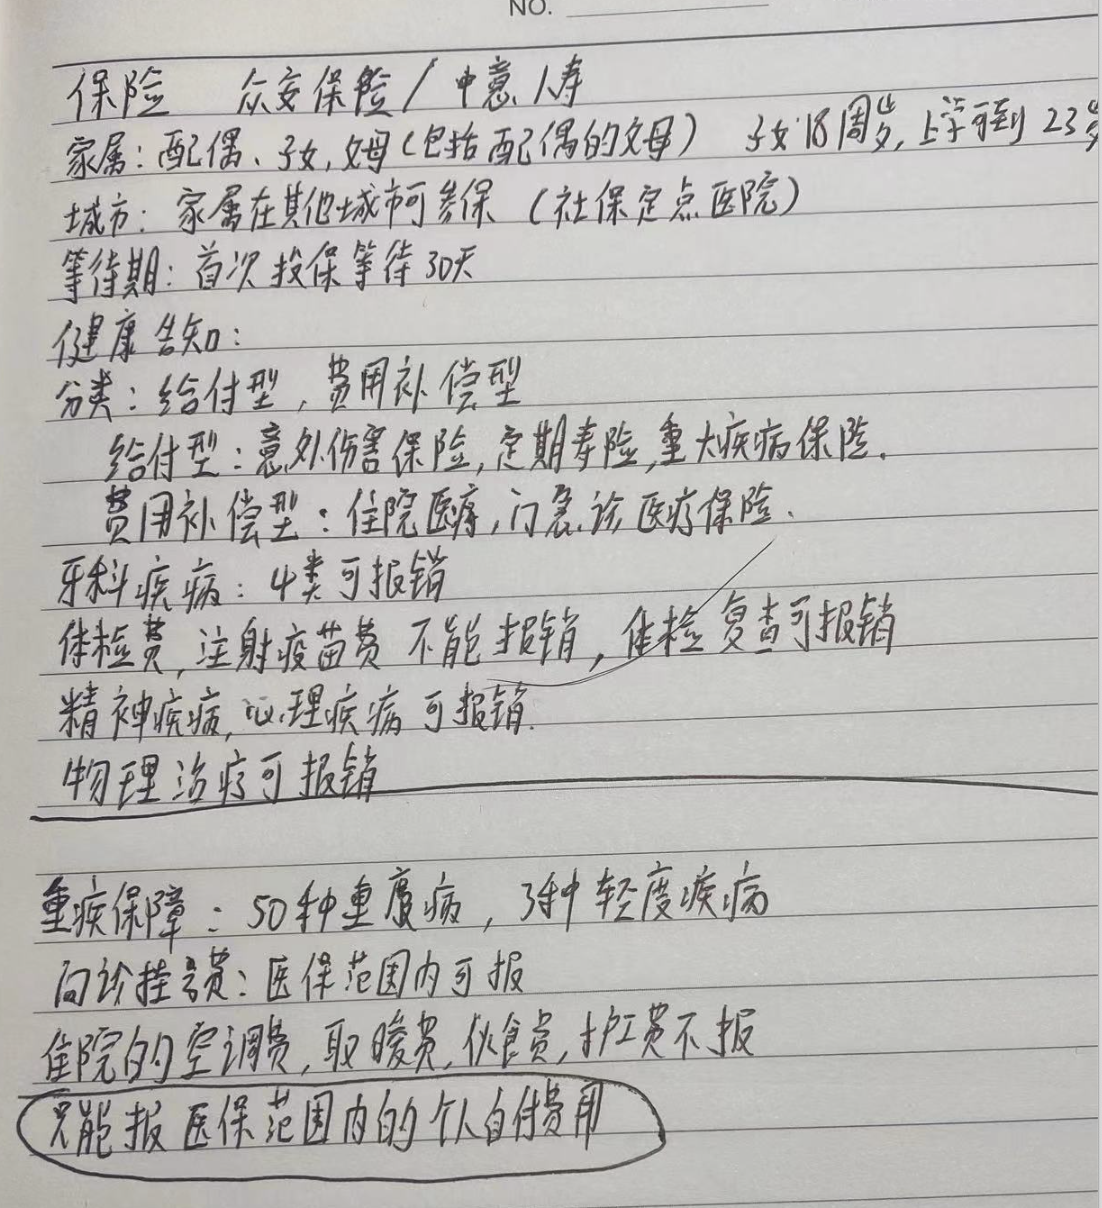 NO.
保险 众安保险/中意人寿
家属:配偶、子女,父母(包括配偶的父母) 子女18周岁,上学可到23岁
城市:家属在其他城市可参保(社保定点医院)
等待期:首次投保等待30天
健康告知:
分类:给付型,费用补偿型
给付型:意外伤害保险,定期寿险,重大疾病保险.
费用补偿型:住院医疗,门急诊医疗保险.
牙科疾病:4类可报销
体检费,注射疫苗费不能报销,体检复查可报销
精神疾病,心理疾病可报销.
物理治疗可报销
重疾保障:50种重度病,3种轻度疾病
问诊挂号费:医保范围内可报
住院的空调费,取暖费,伙食费,护工费不报
只能报医保范围内的个人自付费用